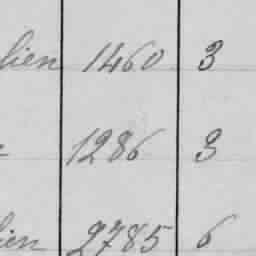 lien 1460 3
1286 3
lien 2785 6